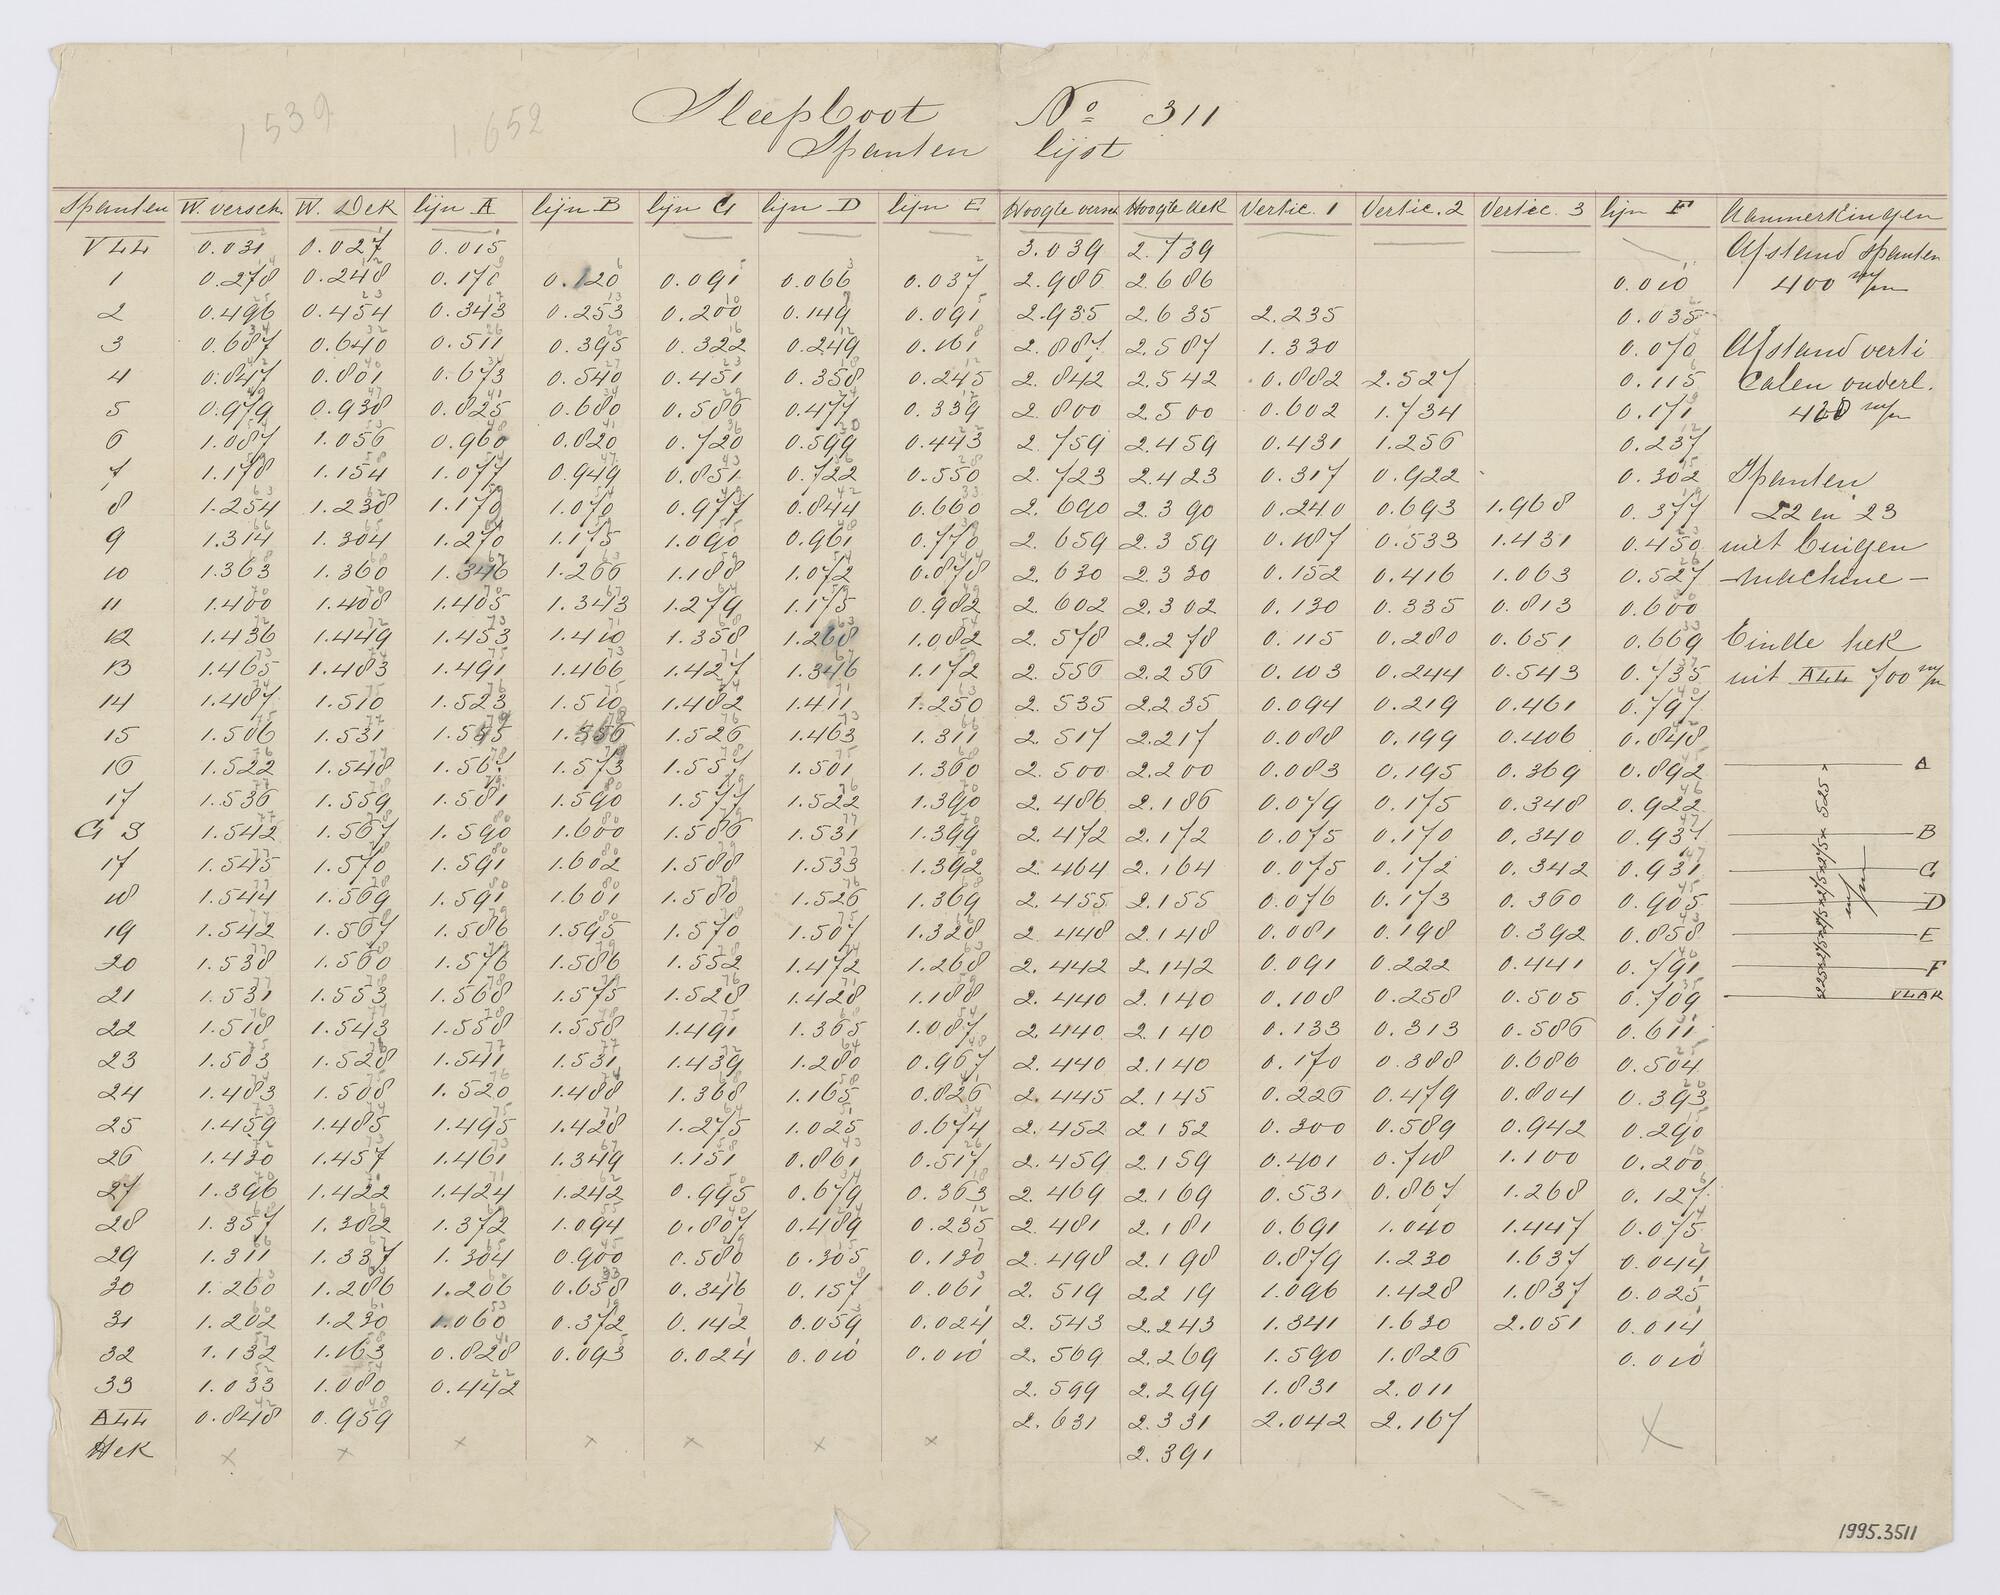 1539 1.652
Sleepboot No 311
Spanten lijst
Spanten W. versch. W. Dek lijn A lijn B lijn C lijn D lijn E Hoogte versch Hoogte dek Vertic. 1 Vertic. 2 Vertic. 3 lijn F Aanmerkingen
VLL 0.031 0.027 0.015 3.039 2.739 Afstand spanten
1 0.278 0.248 0.170 0.120 0.091 0.066 0.037 2.986 2.686 0.010 400 m/m
2 0.496 0.454 0.343 0.253 0.200 0.149 0.091 2.935 2.635 2.235 0.035
3 0.687 0.640 0.511 0.395 0.322 0.249 0.161 2.887 2.587 1.330 0.070 Afstand verti
4 0.847 0.801 0.673 0.540 0.451 0.358 0.245 2.842 2.542 0.882 2.527 0.115 calen onderl.
5 0.979 0.938 0.825 0.680 0.586 0.477 0.339 2.800 2.500 0.602 1.734 0.171 m/m
6 1.087 1.056 0.960 0.820 0.720 0.599 0.443 2.759 2.459 0.431 1.256 0.237
7 1.178 1.154 1.077 0.949 0.851 0.722 0.550 2.723 2.423 0.317 0.922 0.302 Spanten
8 1.254 1.238 1.179 1.070 0.977 0.844 0.660 2.690 2.390 0.240 0.693 1.968 0.377 22 en 23
9 1.314 1.304 1.270 1.175 1.090 0.961 0.770 2.659 2.359 0.187 0.533 1.431 0.450 niet buigen
10 1.363 1.360 1.346 1.266 1.188 1.072 0.878 2.630 2.330 0.152 0.416 1.063 0.527 - machine -
11 1.400 1.408 1.405 1.343 1.279 1.175 0.982 2.602 2.302 0.130 0.335 0.813 0.600
12 1.436 1.449 1.453 1.410 1.358 1.268 1.082 2.578 2.278 0.115 0.280 0.651 0.669 Einde hek
13 1.465 1.483 1.491 1.466 1.427 1.346 1.172 2.556 2.256 0.103 0.244 0.543 0.735 uit ALL 700 m/m
14 1.487 1.510 1.523 1.510 1.482 1.411 1.250 2.535 2.235 0.094 0.219 0.461 0.797
15 1.506 1.531 1.545 1.463 1.526 1.311 2.517 2.217 0.088 0.199 0.406 0.848
16 1.522 1.548 1.567 1.573 1.557 1.501 1.360 2.500 2.200 0.083 0.195 0.369 0.892 A
17 1.536 1.559 1.581 1.590 1.577 1.522 1.390 2.486 2.186 0.079 0.175 0.348 0.922 525
G S 1.542 1.567 1.590 1.600 1.586 1.531 1.399 2.472 2.172 0.075 0.170 0.340 0.937 B
17 1.545 1.570 1.591 1.602 1.588 1.533 1.392 2.464 2.164 0.075 0.172 0.342 0.931 C
18 1.544 1.569 1.591 1.601 1.580 1.526 1.369 2.455 2.155 0.076 0.173 0.360 0.905 D
19 1.542 1.567 1.586 1.595 1.570 1.507 1.328 2.448 2.148 0.081 0.198 0.392 0.858 E
20 1.538 1.560 1.576 1.586 1.552 1.472 1.268 2.442 2.142 0.091 0.222 0.441 0.791 F
21 1.531 1.553 1.568 1.575 1.528 1.428 1.188 2.440 2.140 0.108 0.258 0.505 0.709 VLAK
22 1.518 1.543 1.558 1.558 1.491 1.365 1.087 2.440 2.140 0.133 0.313 0.586 0.611
23 1.503 1.528 1.541 1.531 1.439 1.280 0.967 2.440 2.140 0.170 0.388 0.686 0.504
24 1.483 1.508 1.520 1.488 1.368 1.165 0.826 2.445 2.145 0.226 0.479 0.804 0.393
25 1.459 1.485 1.495 1.428 1.275 1.025 0.674 2.452 2.152 0.300 0.589 0.942 0.290
26 1.430 1.457 1.461 1.349 1.151 0.861 0.517 2.459 2.159 0.401 0.718 1.100 0.200
27 1.396 1.422 1.424 1.242 0.995 0.679 0.363 2.469 2.169 0.531 0.867 1.268 0.127
28 1.357 1.382 1.372 1.094 0.807 0.489 0.235 2.481 2.181 0.691 1.040 1.447 0.075
29 1.311 1.337 1.304 0.900 0.580 0.305 0.130 2.498 2.198 0.879 1.230 1.637 0.044
30 1.260 1.286 1.206 0.658 0.346 0.157 0.061 2.519 2.219 1.096 1.428 1.837 0.025
31 1.202 1.230 1.060 0.372 0.142 0.059 0.024 2.543 2.243 1.341 1.630 2.051 0.014
32 1.132 1.163 0.828 0.093 0.024 0.010 0.010 2.569 2.269 1.590 1.826 0.010
33 1.033 1.080 0.442 2.599 2.299 1.831 2.011
ALL 0.848 0.959 2.631 2.331 2.042 2.167
Hek × × × × × × × 2.391 ×
1995.3511